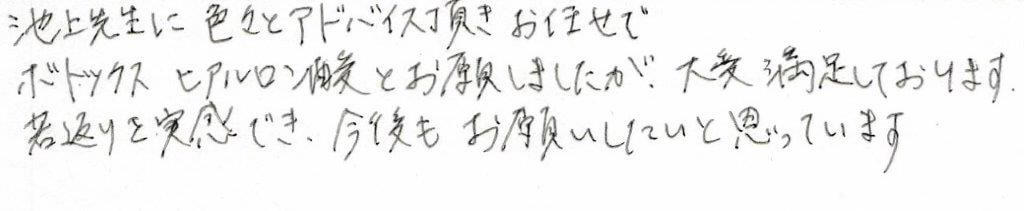 池上先生に 色々とアドバイス頂き お任せで
ボトックス ヒアルロン酸とお願しましたが、大変満足しております.
若返りを実感でき、今後も お願いしたいと思っています